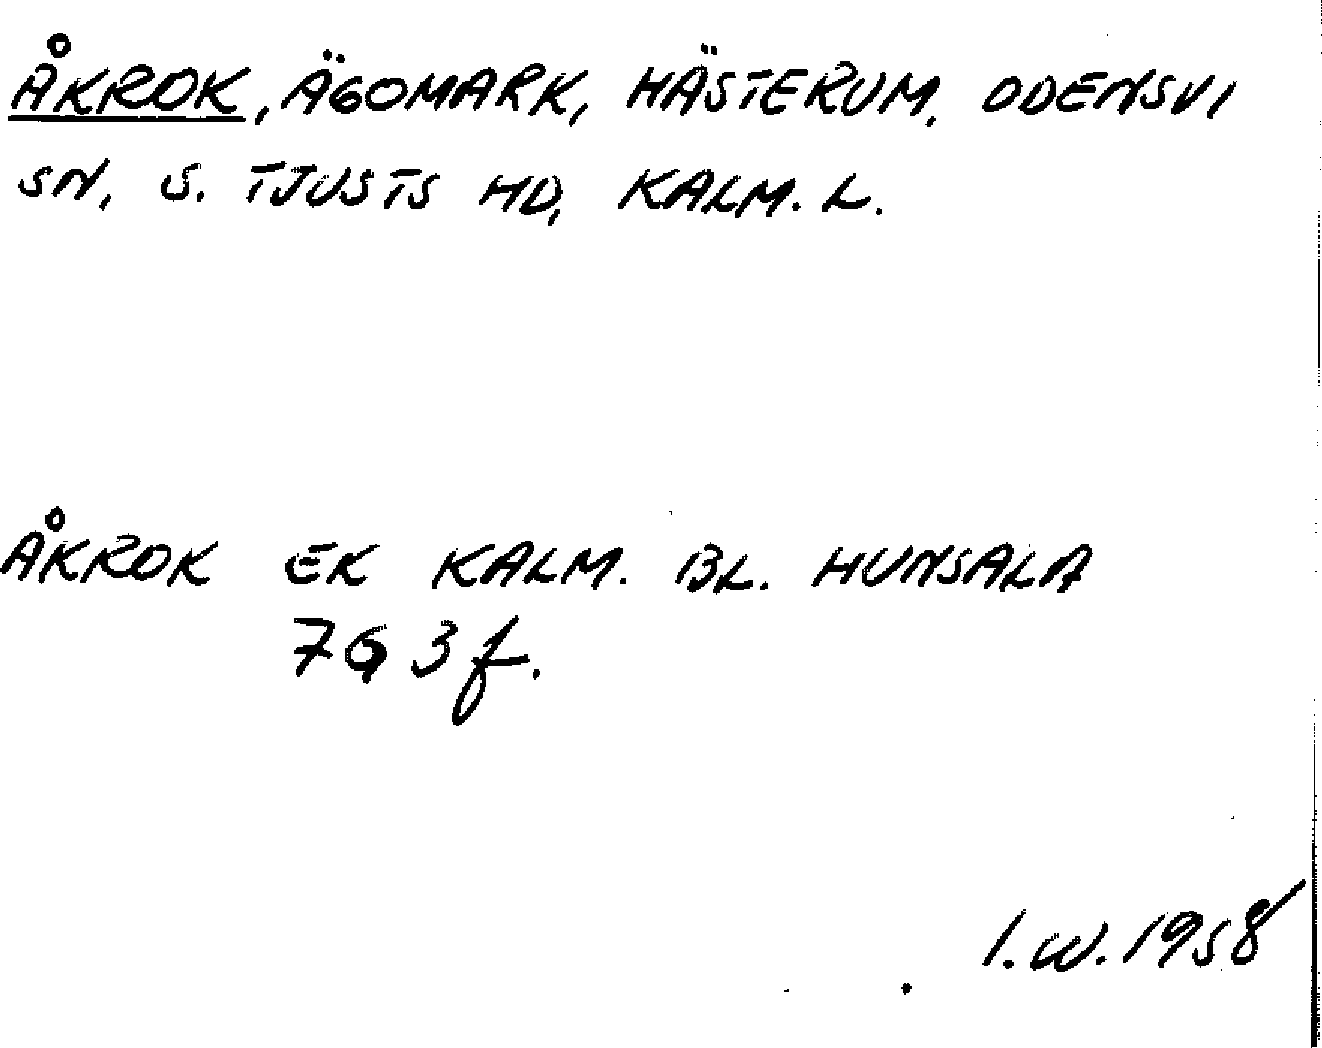 ÅKROK, ÄGOMARK, HÄSTERUM, ODENSVI
SN, S. TJUSTS HD, KALM. L.
ÅKROK EK KALM. BL. HUNSALA
7G3f.
I.W. 1958